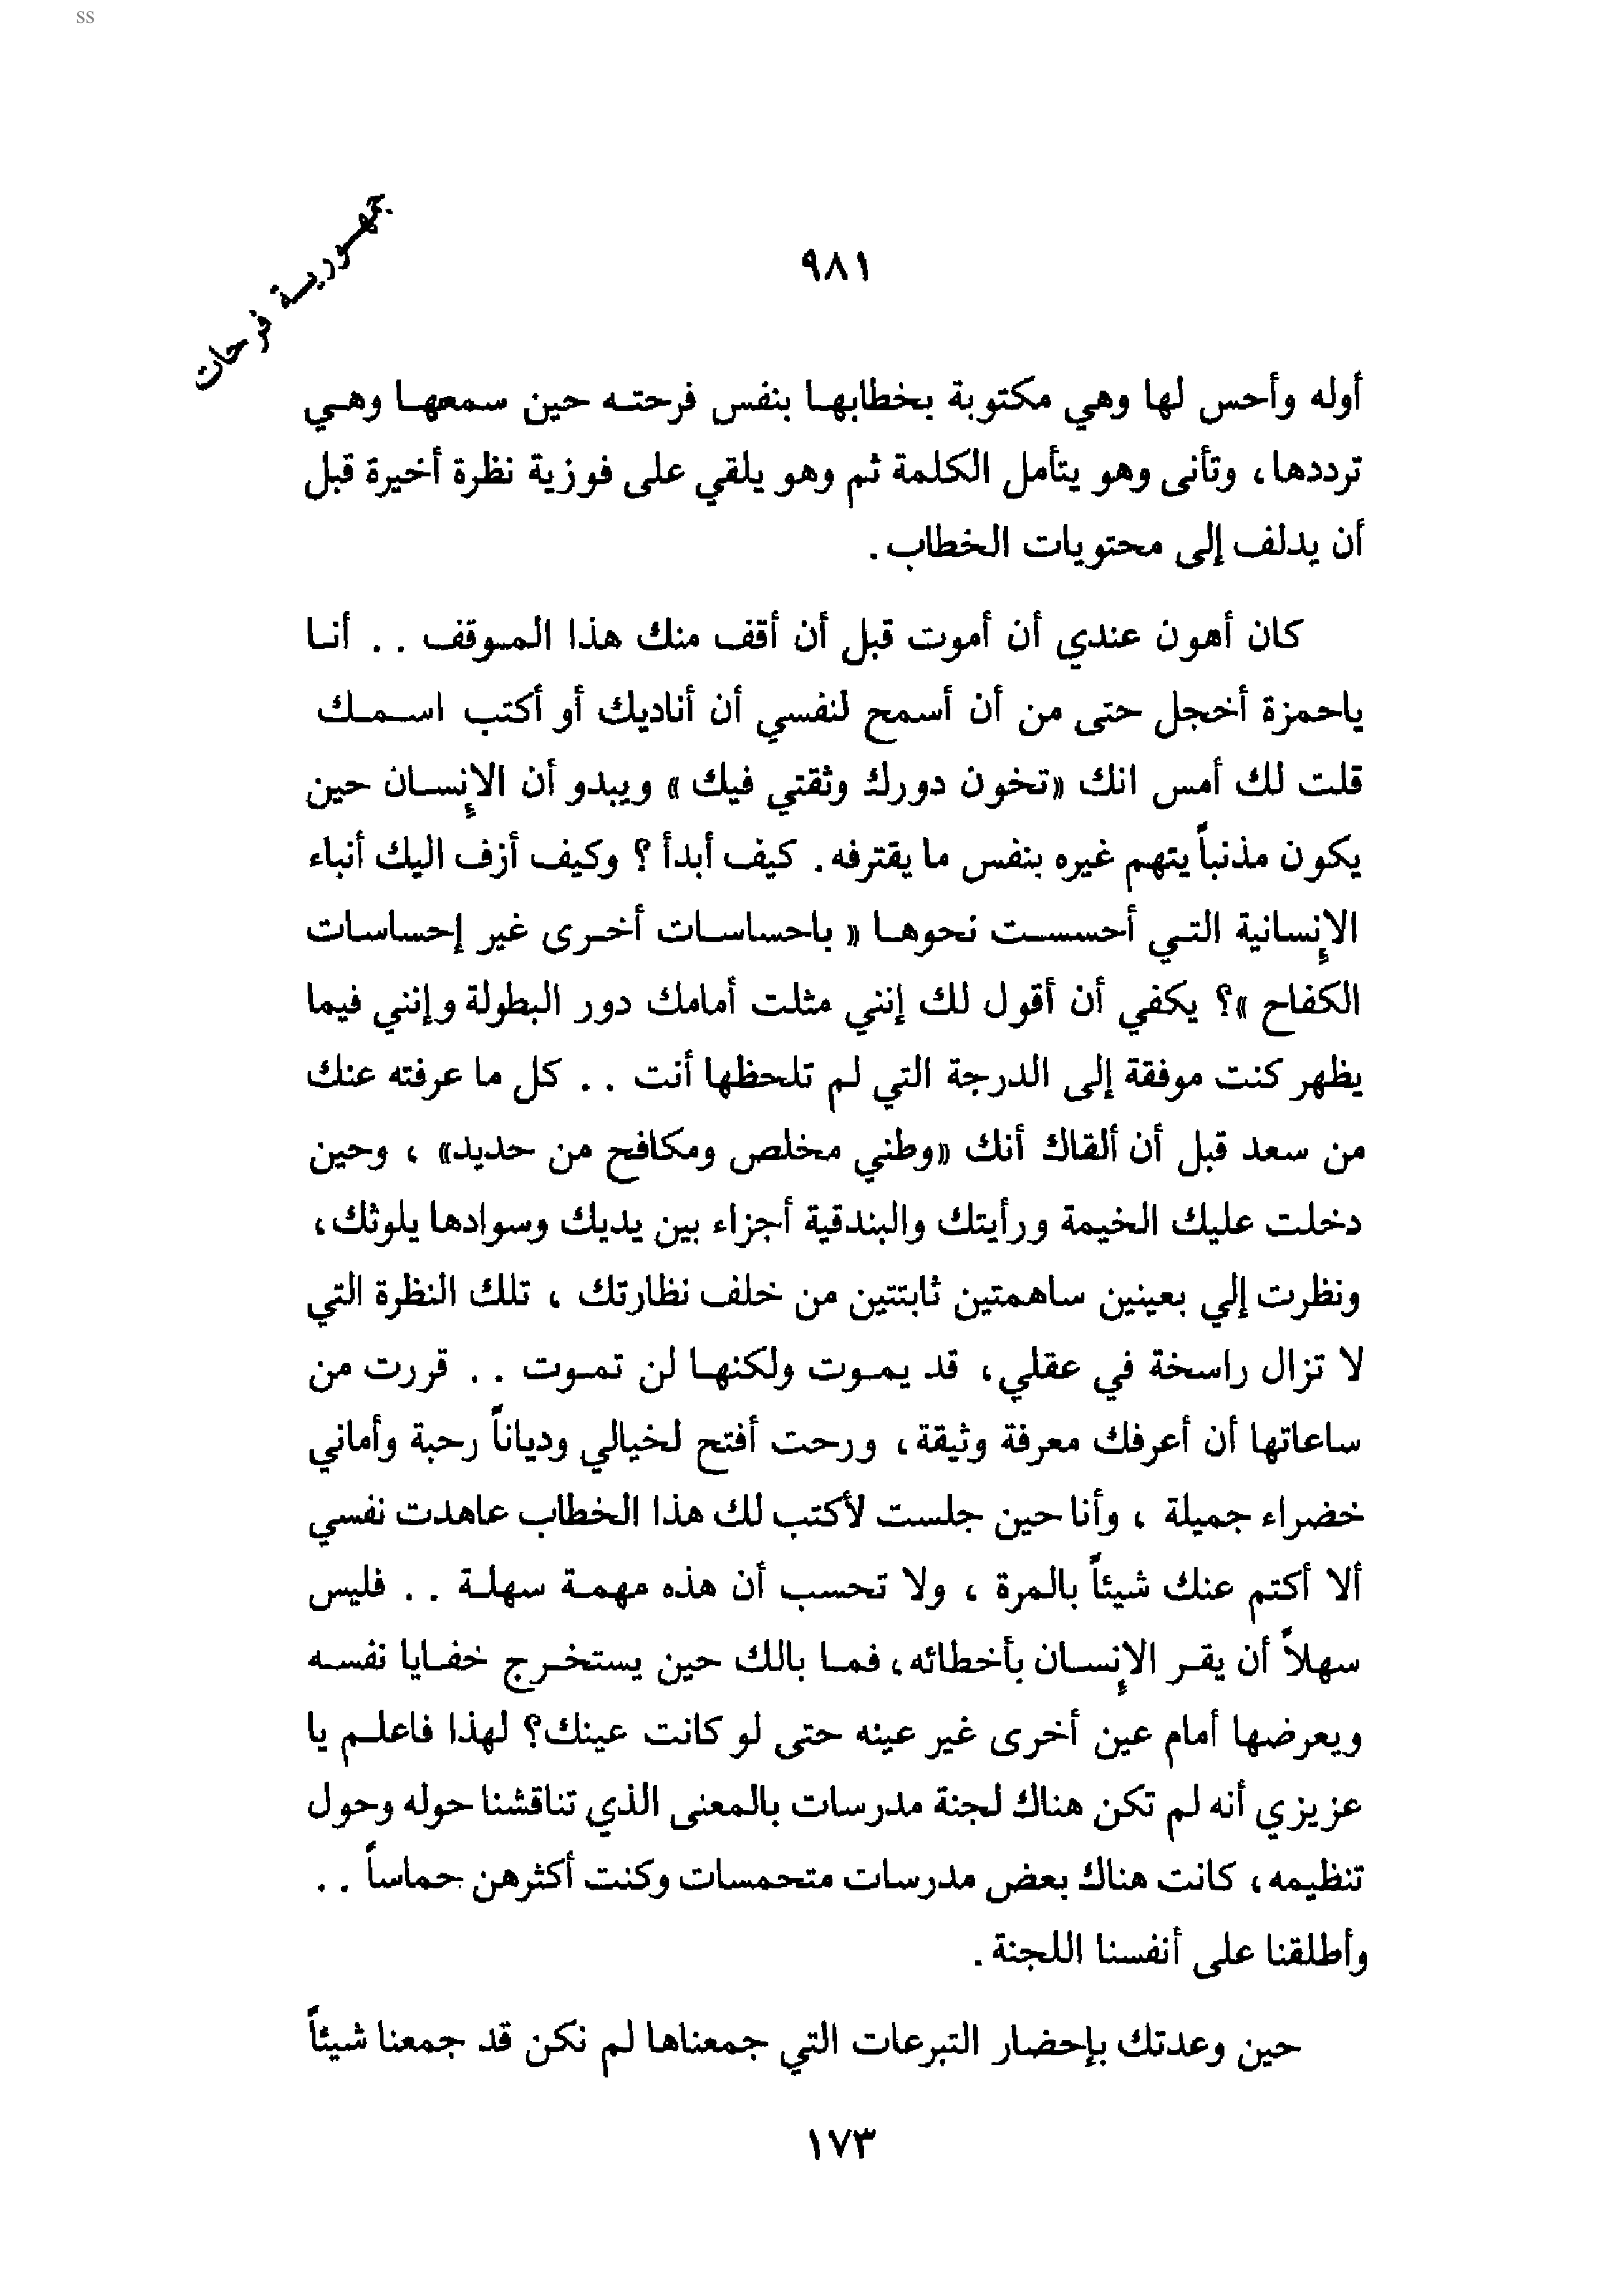 ss
جمهورية فرحات
٩٨١
أوله وأحس لها وهي مكتوبة بخطابها بنفس فرحته حين سمعها وهي
ترددها، وتأنى وهو يتأمل الكلمة ثم وهو يلقي على فوزية نظرة أخيرة قبل
أن يدلف إلى محتويات الخطاب.
كان أهون عندي أن أموت قبل أن أقف منك هذا الموقف .. أنا
ياحمزة أخجل حتى من أن أسمح لنفسي أن أناديك أو أكتب اسمك
قلت لك أمس انك «تخون دورك وثقتي فيك» ويبدو أن الإنسان حين
يكون مذنباً يتهم غيره بنفس ما يقترفه. كيف أبدأ ؟ وكيف أزف اليك أنباء
الإنسانية التي أحسست نحوها « باحساسات أخرى غير إحساسات
الكفاح »؟ يكفي أن أقول لك إنني مثلت أمامك دور البطولة وإنني فيما
يظهر كنت موفقة إلى الدرجة التي لم تلحظها أنت .. كل ما عرفته عنك
من سعد قبل أن ألقاك أنك «وطني مخلص ومكافح من حديد» ، وحين
دخلت عليك الخيمة ورأيتك والبندقية أجزاء بين يديك وسوادها يلوثك،
ونظرت إلي بعينين ساهمتين ثابتتين من خلف نظارتك ، تلك النظرة التي
لا تزال راسخة في عقلي، قد يموت ولكنها لن تموت .. قررت من
ساعاتها أن أعرفك معرفة وثيقة، ورحت أفتح لخيالي ودياناً رحبة وأماني
خضراء جميلة ، وأنا حين جلست لأكتب لك هذا الخطاب عاهدت نفسي
ألا أكتم عنك شيئاً بالمرة ، ولا تحسب أن هذه مهمة سهلة .. فليس
سهلاً أن يقر الإنسان بأخطائه، فما بالك حين يستخرج خفايا نفسه
ويعرضها أمام عين أخرى غير عينه حتى لو كانت عينك؟ لهذا فاعلم يا
عزيزي أنه لم تكن هناك لجنة مدرسات بالمعنى الذي تناقشنا حوله وحول
تنظيمه، كانت هناك بعض مدرسات متحمسات وكنت أكثرهن حماساً ..
وأطلقنا على أنفسنا اللجنة.
حين وعدتك بإحضار التبرعات التي جمعناها لم نكن قد جمعنا شيئاً
١٧٣